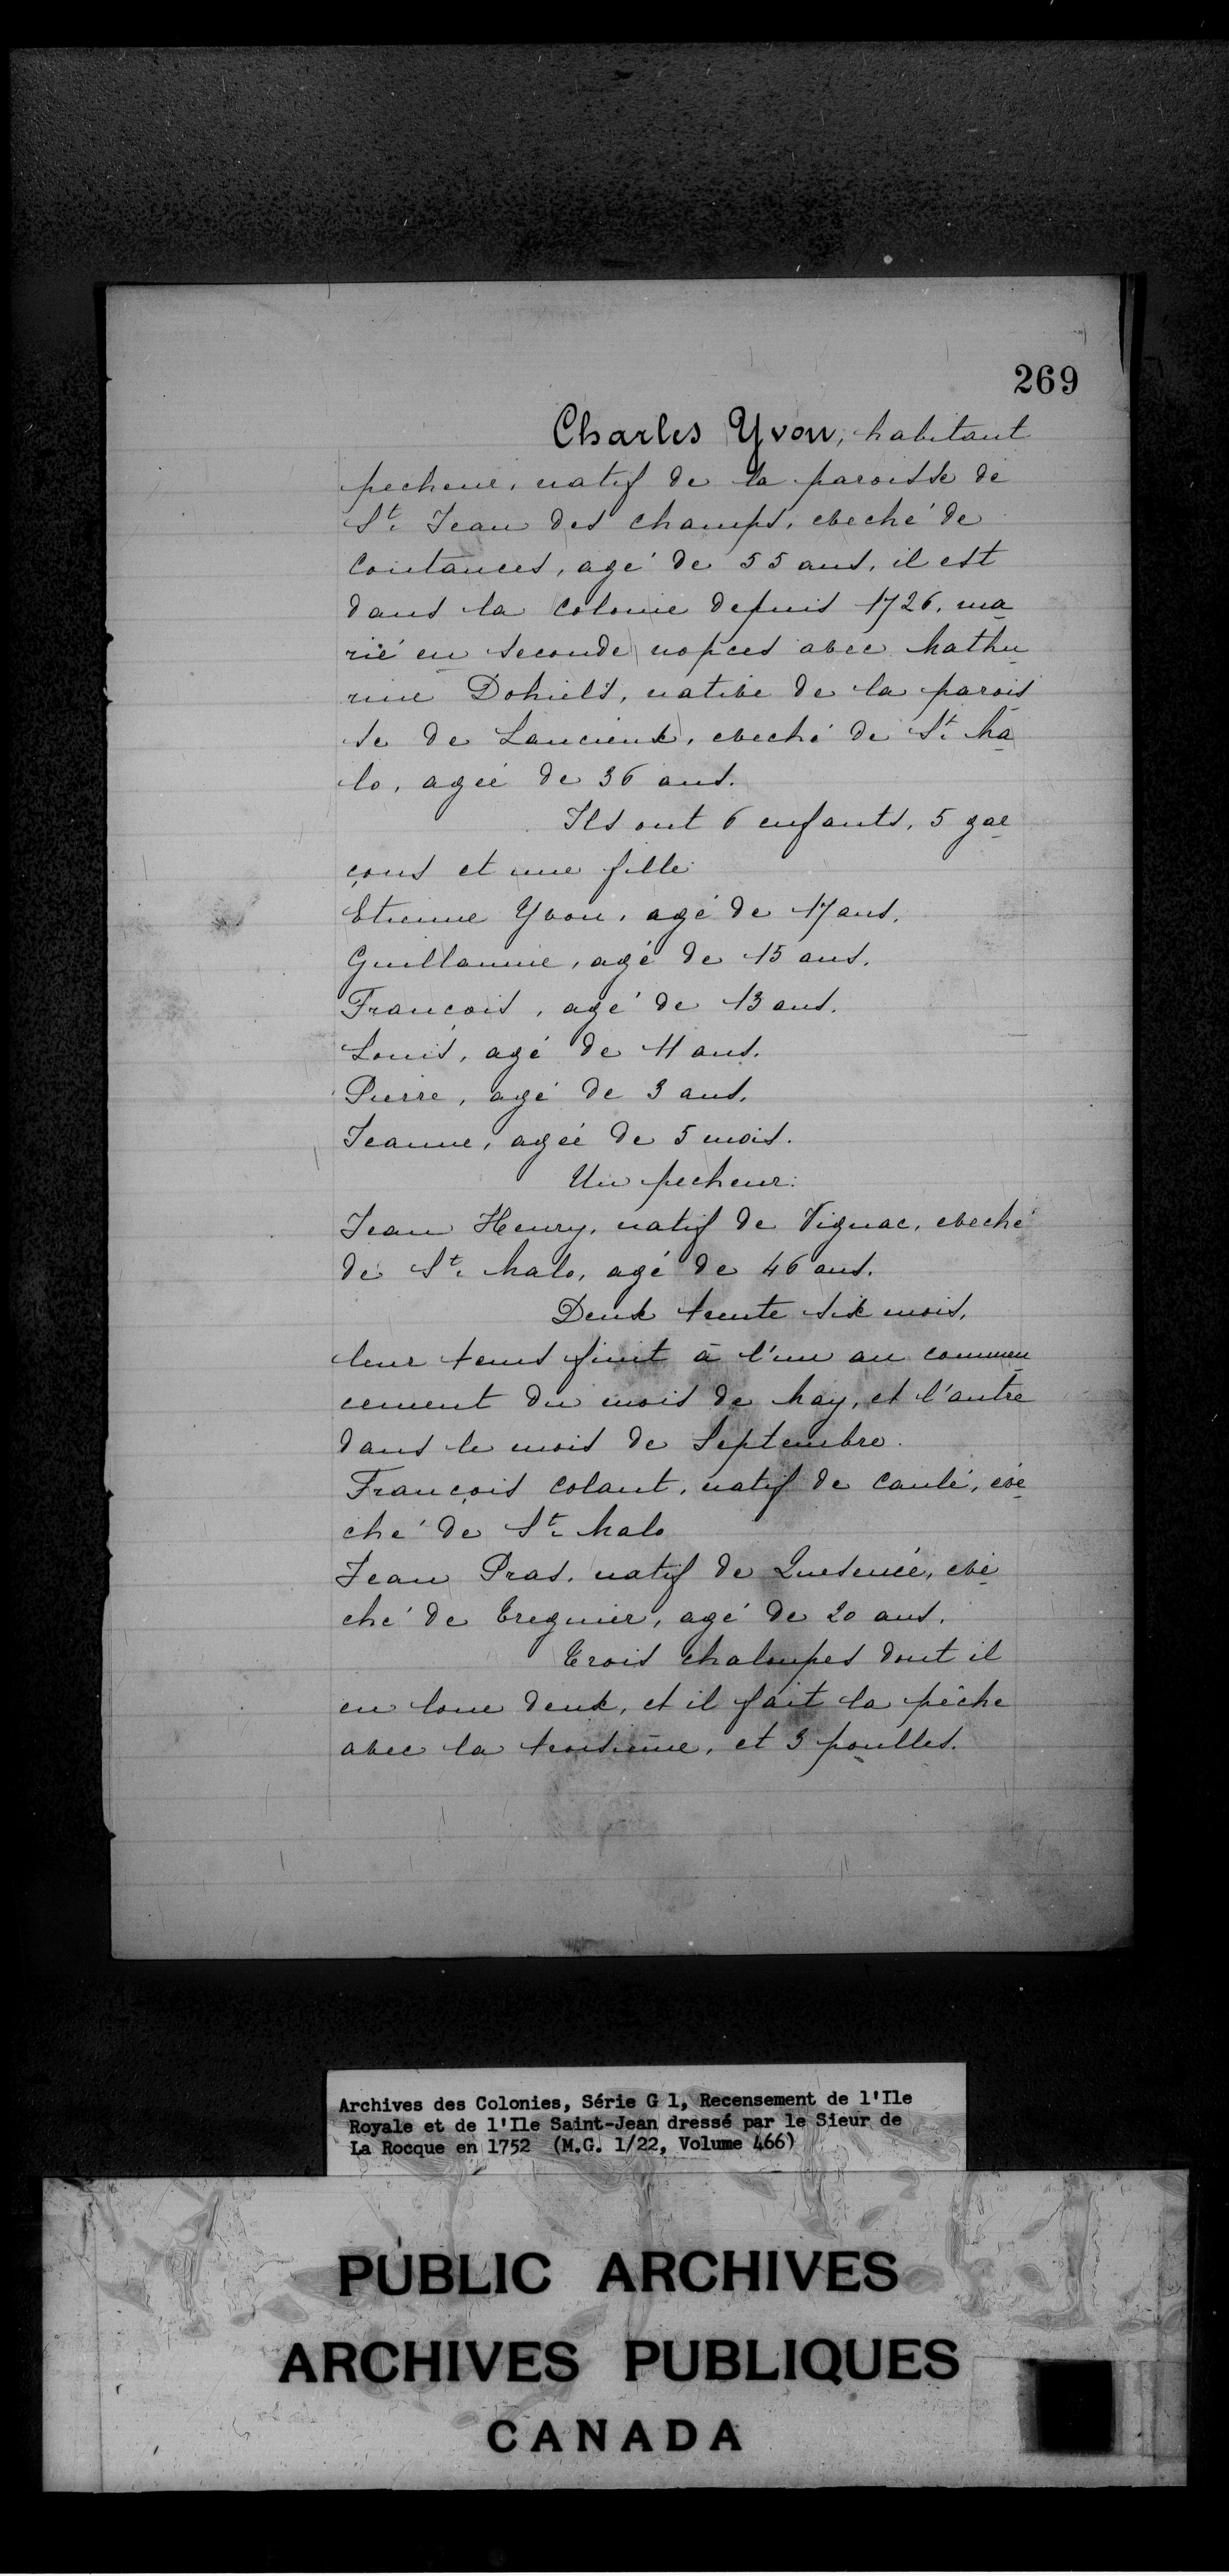 269
Charles Yvon, habitant
pecheur, natif de la paroisse de
St. Jean des champs, eveché de
Coutances, agé de 55 ans, il est
dans la Colonie depuis 1726, ma
rié en seconde nopces avec Mathu
rine Dohiels, native de la parois
se de Lancieux, eveché de St. Ma
lo, ageé de 36 ans.
Ils ont 6 enfants, 5 gar
çons et une fille
Etienne Yvon, agé de 17 ans.
Guillaume, agé de 15 ans.
Francois, agé de 13 ans.
Louis, agé de 11 ans.
Pierre, agé de 3 ans.
Jeanne, ageé de 5 mois.
Un pecheur:
Jean Henry, natif de Vignac, eveché
de St. Malo, agé de 46 ans.
Deux trente six mois,
leur tems finit à l'un au commen
cement du mois de May, et l'autre
dans le mois de Septembre.
François Colant, natif de Caulé, evé
ché de St. Malo
Jean Pras, natif de Quesence, evé
ché de Treguier, agé de 20 ans.
Trois chaloupes dont il
en loue deux, et il fait la pêche
avec la troisieme, et 3 poulles.
Archives des Colonies, Série G 1, Recensement de l'Ile
Royale et de l'Ile Saint-Jean dressé par le Sieur de
La Rocque en 1752 (M.G. 1/22, Volume 466)
PUBLIC ARCHIVES
ARCHIVES PUBLIQUES
CANADA